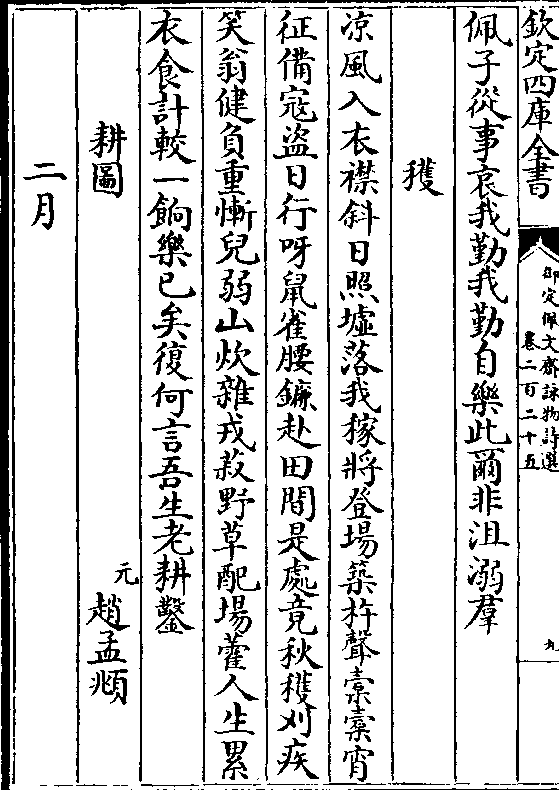 欽定四庫全書
御定佩文齋詠物詩選
卷二百二十五
九
佩子從事哀我勤我勤自樂此爾非沮溺羣
穫
凉風入衣襟斜日照墟落我稼將登場築杵聲橐橐宵
征備寇盜日行呀鼠雀腰鐮赴田間是處竟秋穫刈疾
笑翁健負重慚兒弱山炊雜戎菽野草配場藿人生累
衣食計較一餉樂已矣復何言吾生老耕鑿
耕圖
元趙孟頫
二月